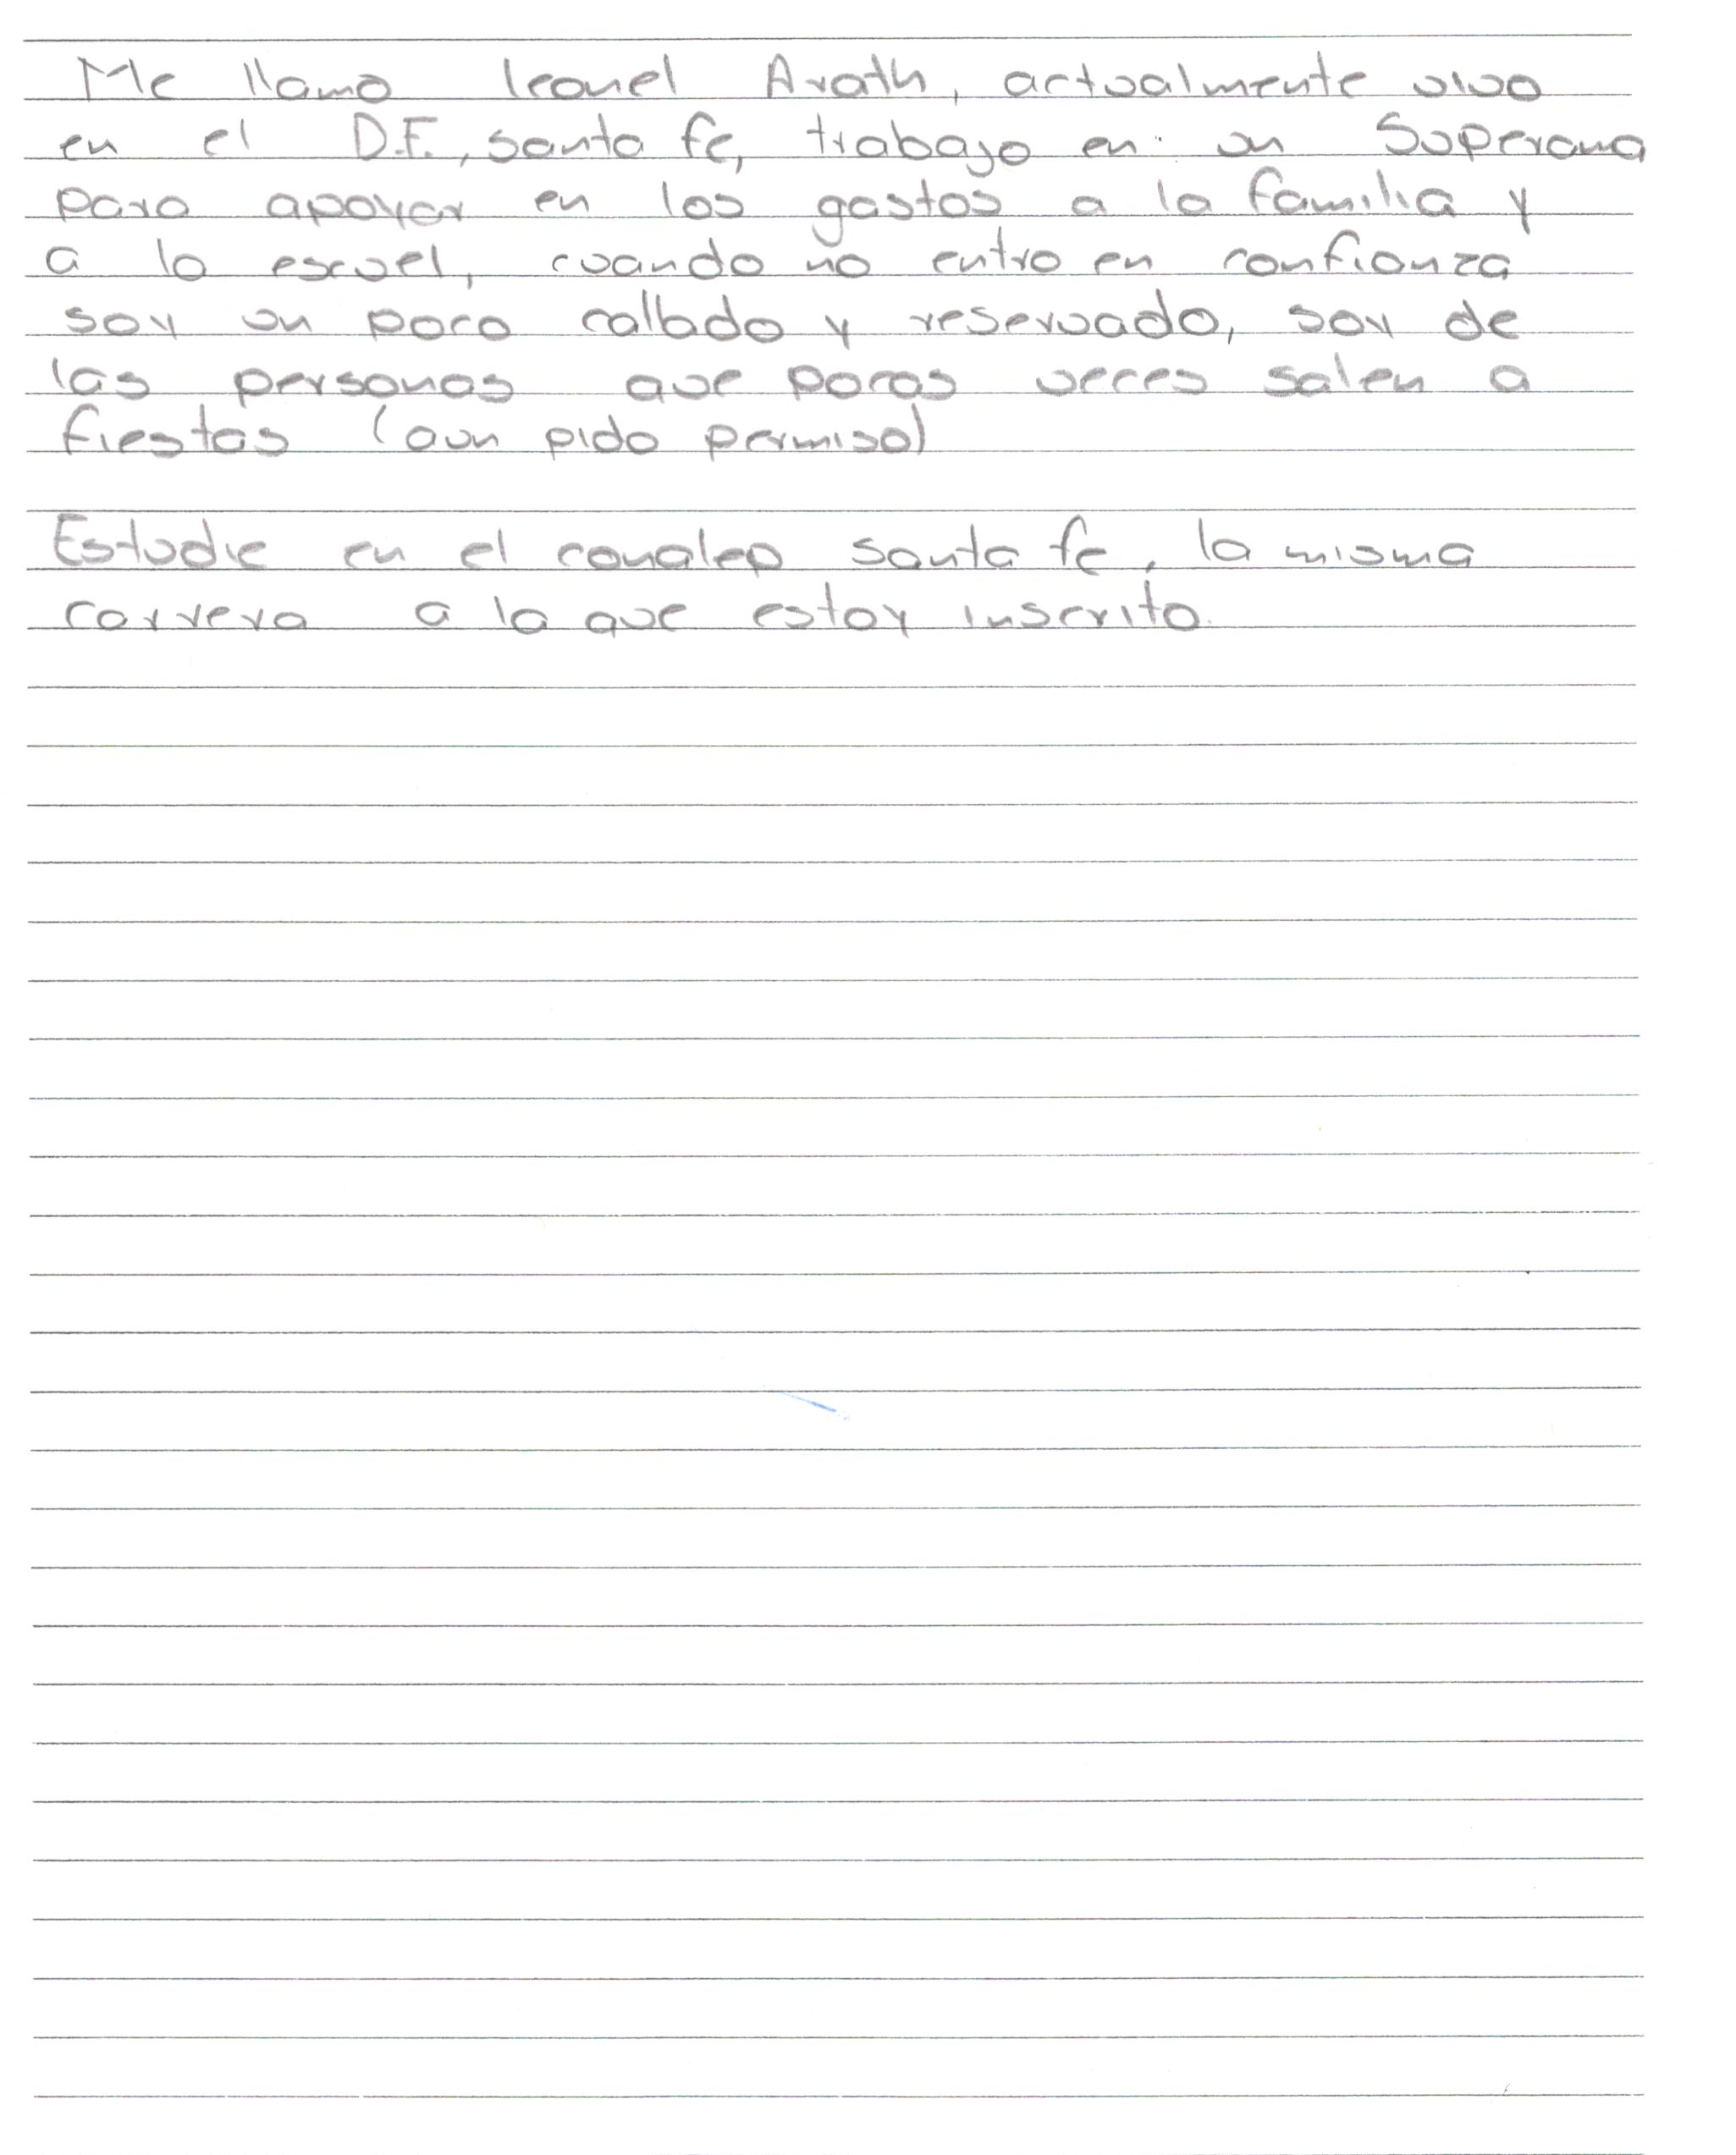 Me llamo leonel Arath, actualmente vivo
en el D.F., santa fe, trabajo en un Superama
para apoyar en los gastos a la familia y
a la escuel, cuando no entro en confianza
soy un poco callado y reservado, soy de
las personas que pocas veces salen a
fiestas (aun pido permiso)
Estudie en el conalep santa fe, la misma
carrera a la que estoy inscrito.